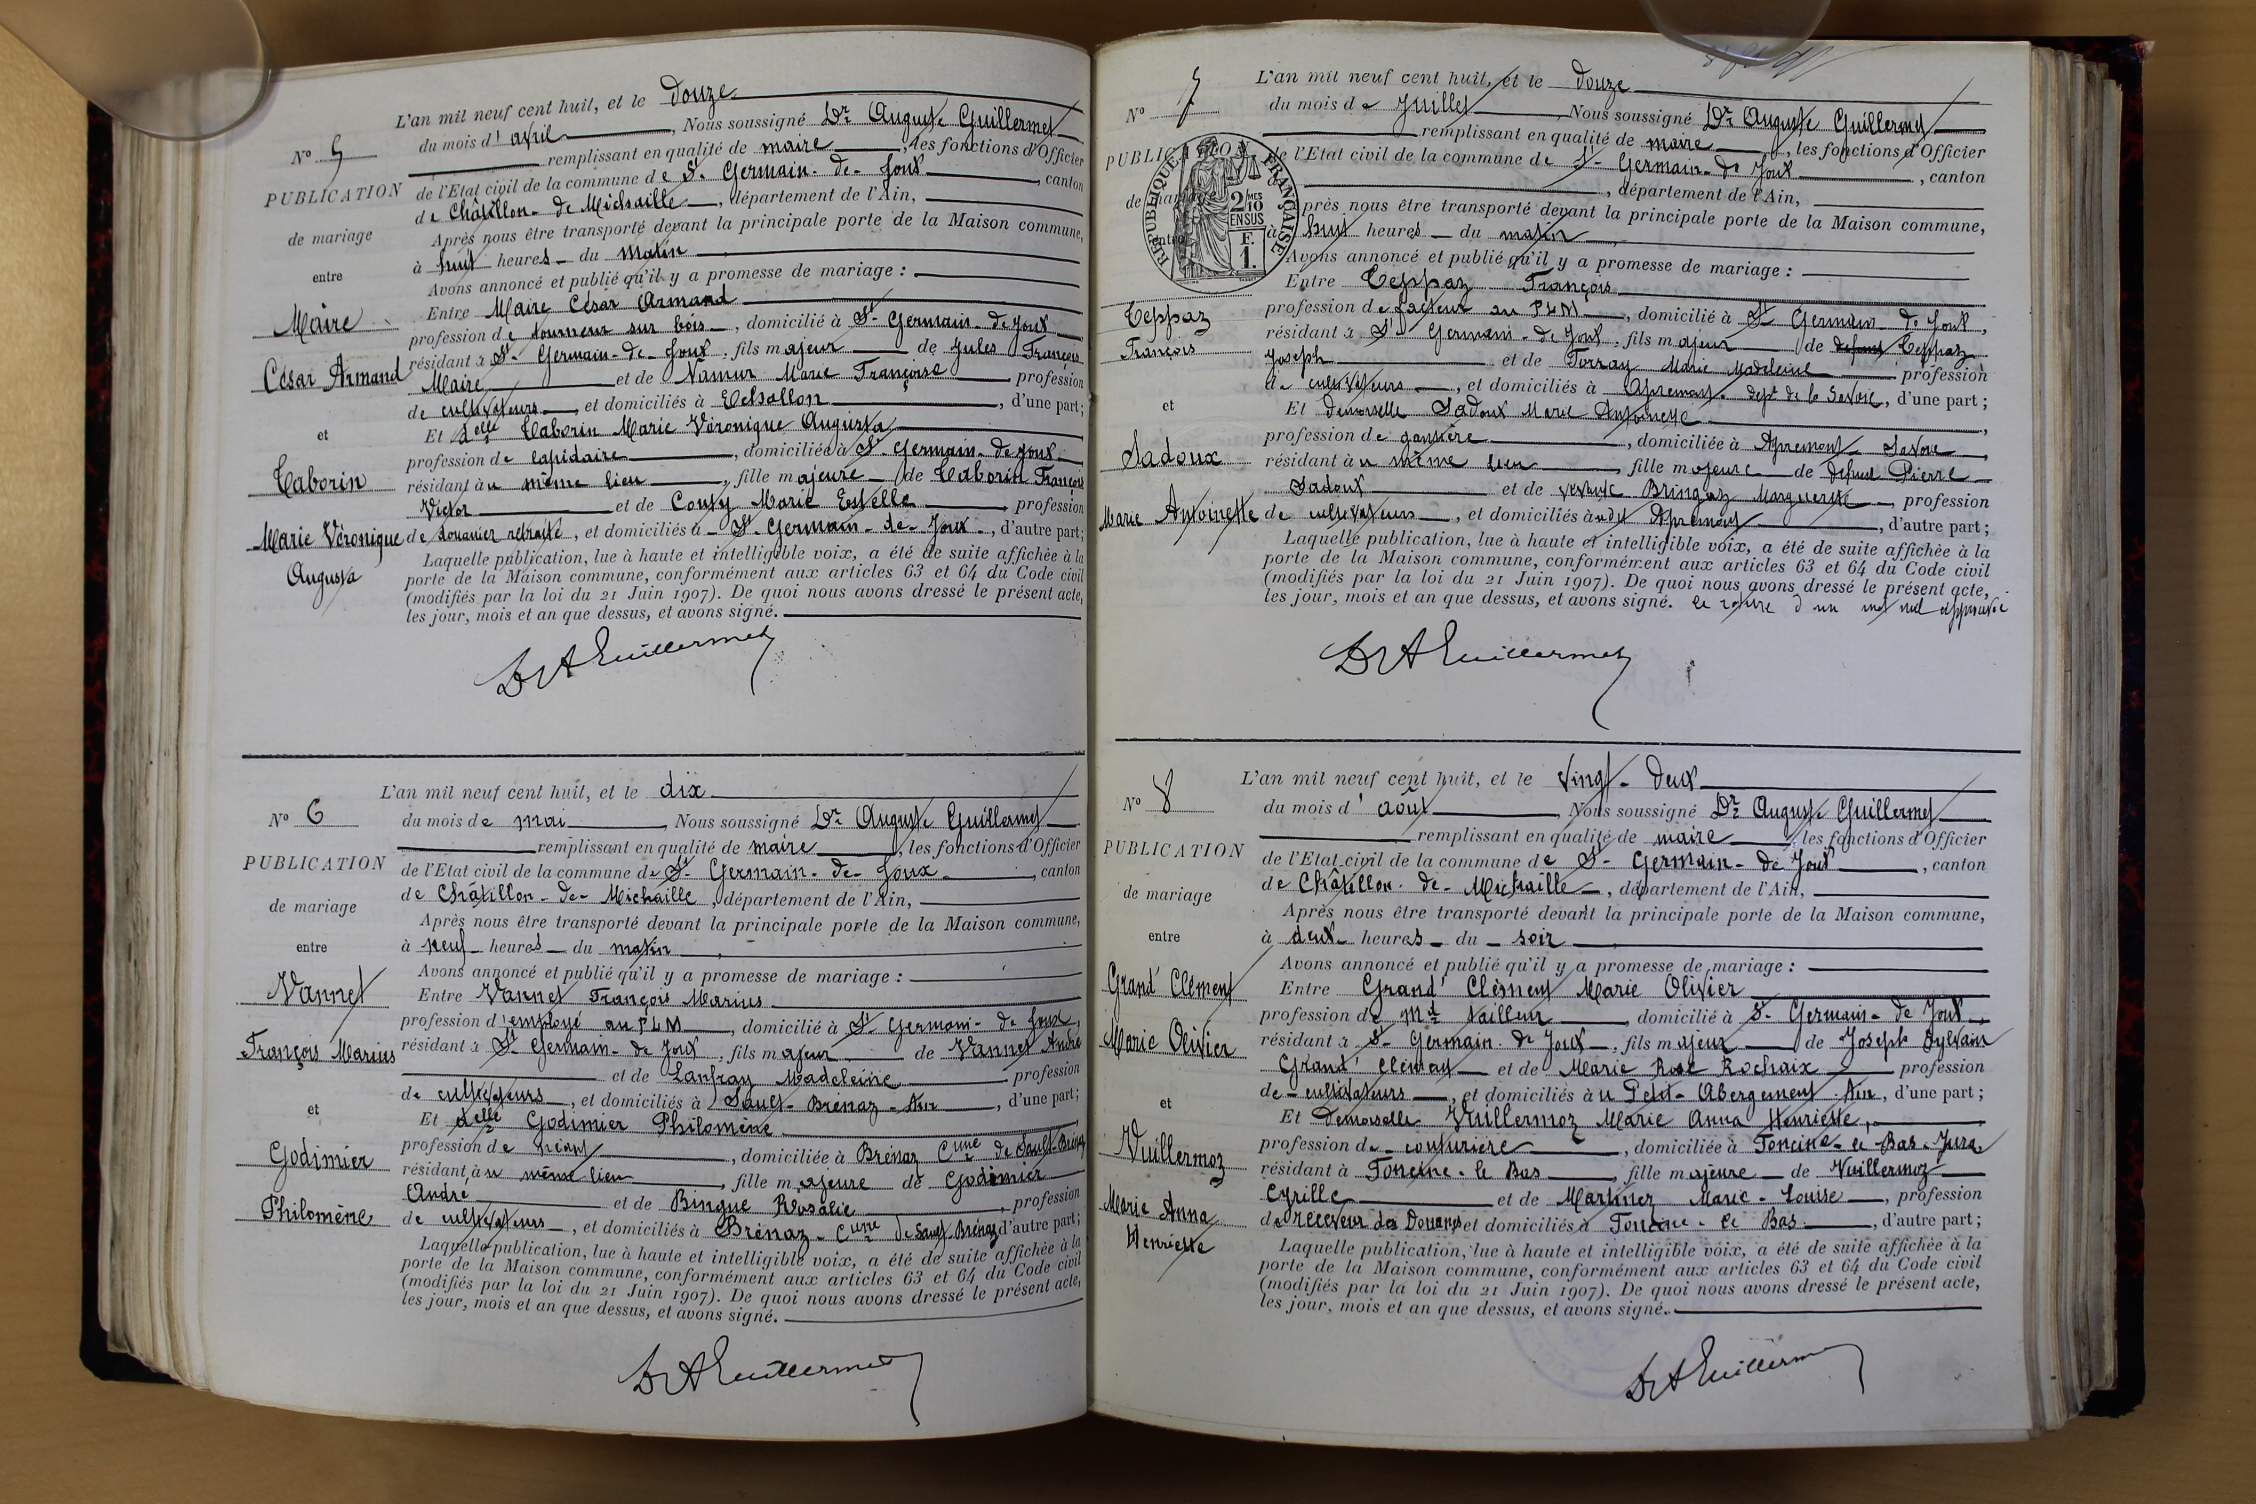 L'an mil neuf cent huit, et le douze
du mois d' avril, Nous soussigné Dr Auguste Guillermet
N° 5
remplissant en qualité de maire, les fonctions d'Officier
PUBLICATION
de l'Etat civil de la commune de St Germain-de-Joux, canton
de Châtillon-de-Michaille, département de l'Ain,
de mariage
Après nous être transporté devant la principale porte de la Maison commune,
à huit heures du matin
entre
Avons annoncé et publié qu'il y a promesse de mariage :
Maire
César Armand
Entre Maire César Armand
profession de tourneur sur bois, domicilié à St Germain-de-Joux,
résidant à St Germain-de-Joux, fils majeur de Jules François
Maire et de Namur Marie Françoise profession
de cultivateurs, et domiciliés à Echallon, d'une part;
et
Et delle Taborin Marie Véronique Augusta
profession de lapidaire, domiciliée à St Germain-de-Joux
Taborin
Marie Véronique
Augusta
résidant au même lieu, fille majeure de Taborin François
Victor et de Marie Estelle profession
de douanier retraité, et domiciliés à St Germain-de-Joux, d'autre part;
Laquelle publication, lue à haute et intelligible voix, a été de suite affichée à la
porte de la Maison commune, conformément aux articles 63 et 64 du Code civil
(modifiés par la loi du 21 Juin 1907). De quoi nous avons dressé le présent acte,
les jour, mois et an que dessus, et avons signé.
Dr A Guillermet
L'an mil neuf cent huit, et le dix
N° 6
du mois de mai, Nous soussigné Dr Auguste Guillermet
remplissant en qualité de maire, les fonctions d'Officier
PUBLICATION
de l'Etat civil de la commune de St Germain-de-Joux, canton
de Châtillon-de-Michaille, département de l'Ain,
de mariage
Après nous être transporté devant la principale porte de la Maison commune,
entre
à neuf heures du matin
Avons annoncé et publié qu'il y a promesse de mariage :
Vannet
François Marius
Entre Vannet François Marius
profession d'employé au PLM, domicilié à St Germain-de-Joux,
résidant à St Germain-de-Joux, fils majeur de Vannet André
et de Lanfray Madeleine profession
de cultivateurs, et domiciliés à Sault-Brénaz-Ain, d'une part;
et
Et delle Godimier Philomène
Godimier
Philomène
profession de néant, domiciliée à Brénaz Cune de Sault-Brénaz
résidant au même lieu, fille majeure de Godimier
André et de Bingue Rosalie, profession
de cultivateurs, et domiciliés à Brénaz-Cune de Sault-Brénaz d'autre part;
Laquelle publication, lue à haute et intelligible voix, a été de suite affichée à la
porte de la Maison commune, conformément aux articles 63 et 64 du Code civil
(modifiés par la loi du 21 Juin 1907). De quoi nous avons dressé le présent acte,
les jour, mois et an que dessus, et avons signé.
Dr A Guillermet
L'an mil neuf cent huit, et le douze
N° 7
du mois de Juillet, Nous soussigné Dr Auguste Guillermet
remplissant en qualité de maire, les fonctions d'Officier
PUBLICATION
de l'Etat civil de la commune de St Germain-de-Joux, canton
, département de l'Ain,
de mariage
RÉPUBLIQUE FRANÇAISE
2 mes 10
EN SUS
F.
1.
Après nous être transporté devant la principale porte de la Maison commune,
entre
à huit heures du matin,
Avons annoncé et publié qu'il y a promesse de mariage :
Teppaz
François
Entre Teppaz François
profession de facteur au PLM, domicilié à St Germain-de-Joux,
résidant à St Germain-de-Joux, fils majeur de defunt Teppaz
Joseph et de Torray Marie Madeleine profession
de cultivateurs, et domiciliés à Apremont. dept de la Savoie, d'une part;
et
Et demoiselle Sadoux Marie Antoinette,
Sadoux
Marie Antoinette
profession de gantière, domiciliée à Apremont Savoie,
résidant au même lieu, fille majeure de defunt Pierre
Sadoux et de veuve Bringaz Marguerite, profession
de cultivateurs, et domiciliés audit Apremont, d'autre part;
Laquelle publication, lue à haute et intelligible voix, a été de suite affichée à la
porte de la Maison commune, conformément aux articles 63 et 64 du Code civil
(modifiés par la loi du 21 Juin 1907). De quoi nous avons dressé le présent acte,
les jour, mois et an que dessus, et avons signé. la rature d'un mot nul approuvée
Dr A Guillermet
L'an mil neuf cent huit, et le vingt-deux
N° 8
du mois d' août, Nous soussigné Dr Auguste Guillermet
remplissant en qualité de maire, les fonctions d'Officier
PUBLICATION
de l'Etat civil de la commune de St Germain-de-Joux, canton
de Châtillon-de-Michaille, département de l'Ain,
de mariage
Après nous être transporté devant la principale porte de la Maison commune,
entre
à deux heures du soir
Avons annoncé et publié qu'il y a promesse de mariage :
Grand' Clément
Marie Olivier
Entre Grand' Clément Marie Olivier
profession de Md tailleur, domicilié à St Germain-de-Joux,
résidant à St Germain-de-Joux, fils majeur de Joseph Sylvain
Grand' Clément et de Marie Rose Rochaix profession
de cultivateurs, et domiciliés au Petit-Abergement Ain, d'une part;
et
Et demoiselle Vuillermoz Marie Anna Henriette,
Vuillermoz
Marie Anna
Henriette
profession de couturière, domiciliée à Foncine-le-Bas-Jura
résidant à Foncine-le Bas, fille majeure de Vuillermoz
Cyrille et de Martinez Marie-Louise, profession
de receveur des Douanes et domiciliés à Foncine-le Bas, d'autre part;
Laquelle publication, lue à haute et intelligible voix, a été de suite affichée à la
porte de la Maison commune, conformément aux articles 63 et 64 du Code civil
(modifiés par la loi du 21 Juin 1907). De quoi nous avons dressé le présent acte,
les jour, mois et an que dessus, et avons signé.
Dr A Guillermet